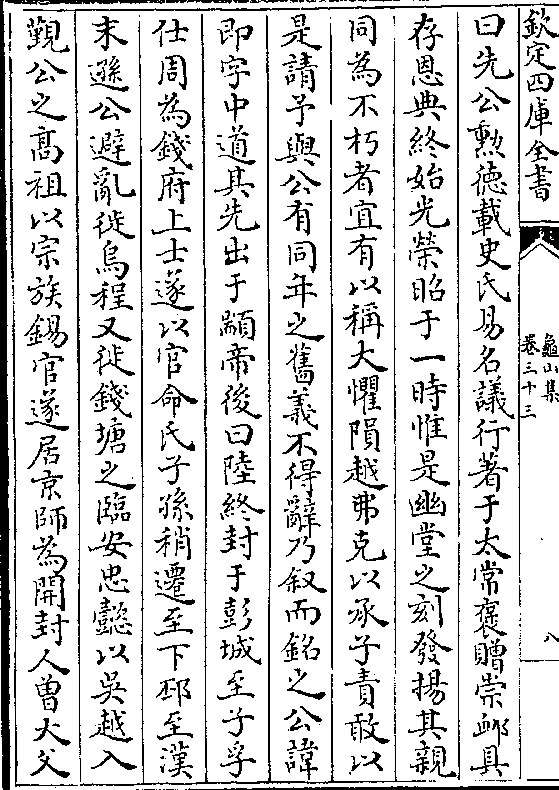 欽定四庫全書
龜山集
卷三十三
八
曰先公勲德載史氏易名議行著于太常褒贈崇䘏具
存恩典終始光榮昭于一時惟是幽堂之刻發揚其親
同為不朽者宜有以稱大懼隕越弗克以承子責敢以
是請予與公有同年之舊義不得辭乃叙而銘之公諱
即字中道其先出于顓帝後曰陸終封于彭城至子孚
仕周為錢府上士遂以官命氏子孫稍遷至下邳至漢
末遜公避亂徙烏程又徙錢塘之臨安忠懿以吳越入
覲公之髙祖以宗族錫官遂居京師為開封人曾大父